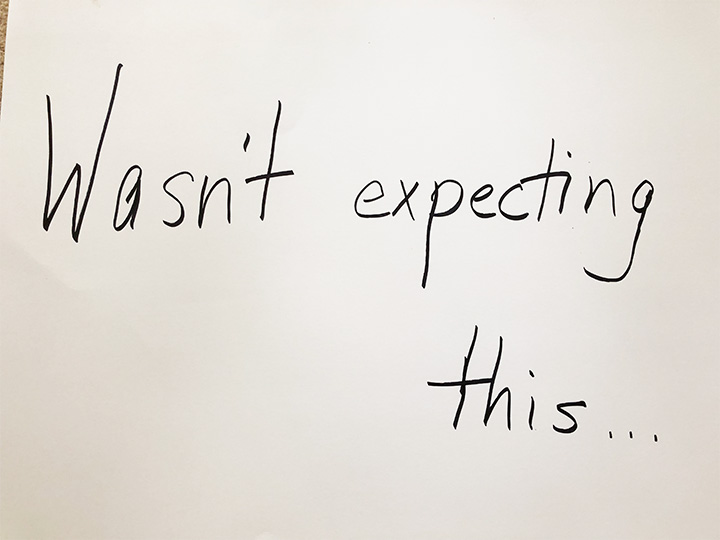 Wasn't expecting
this...